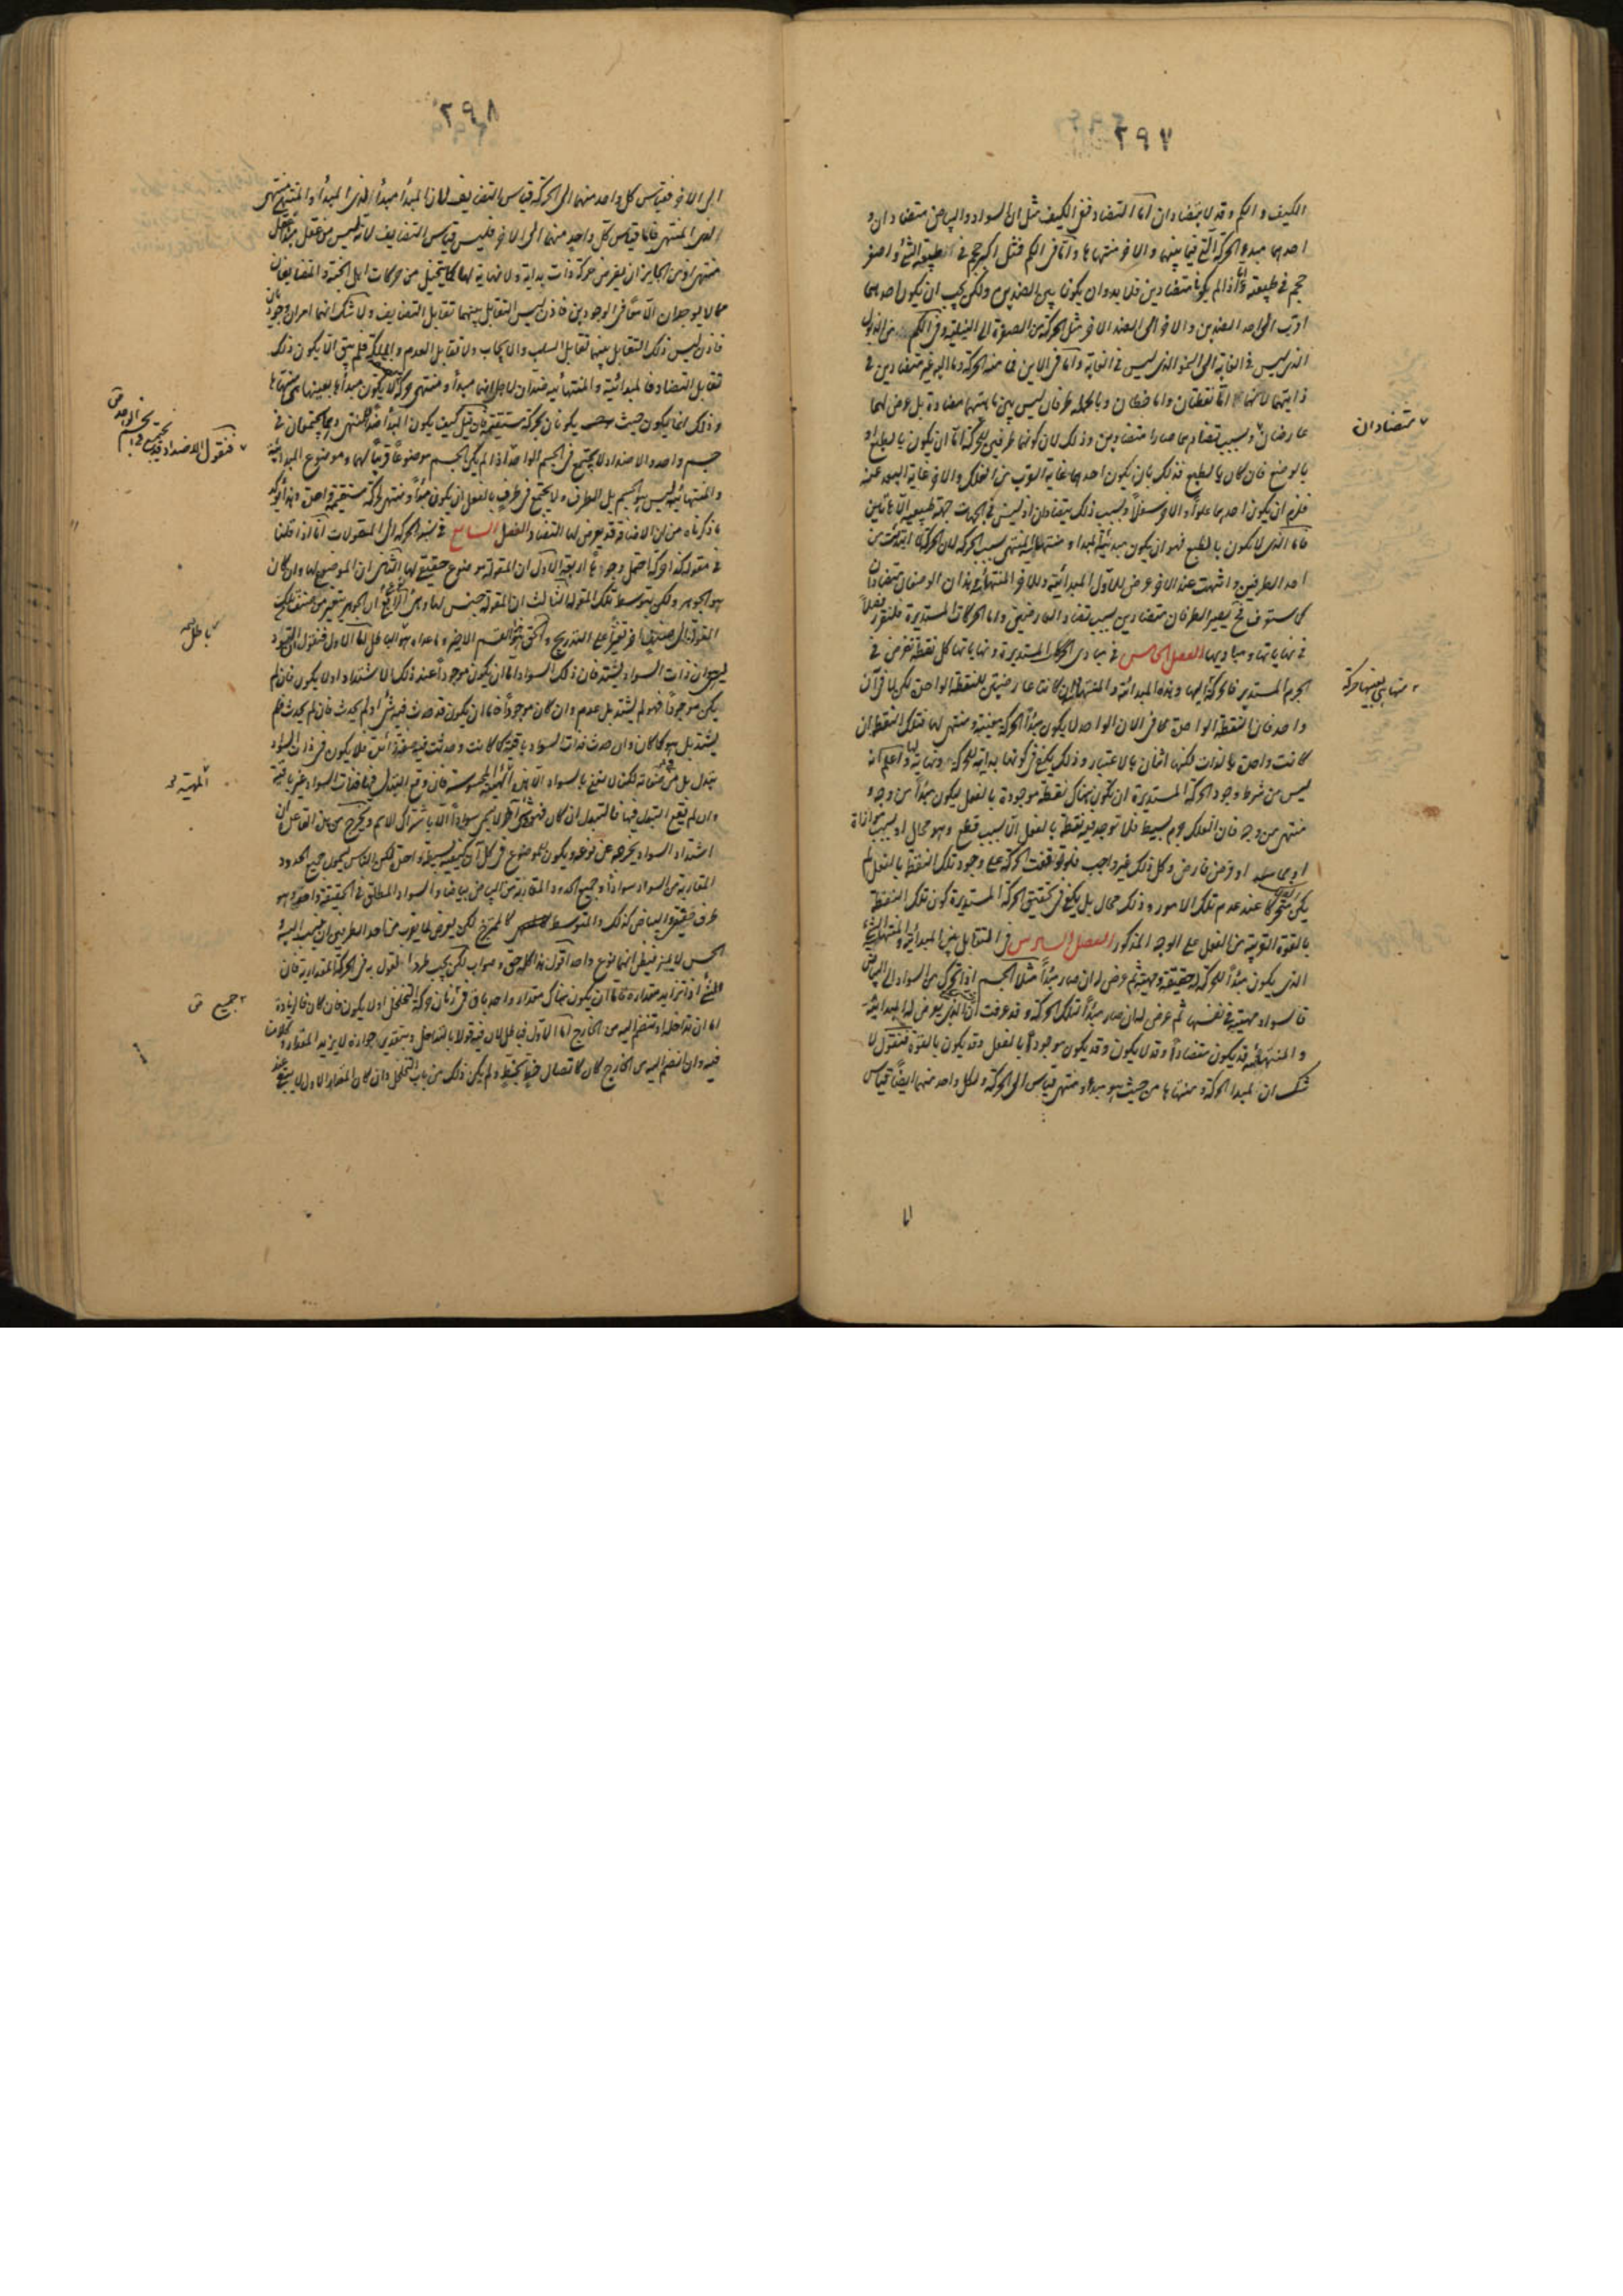 ٢٩٧
الكيف والكم وقد لا يتضادان اما التضاد ففى الكيف مثل ان السواد والبياض متضادان و
احدهما مبدء الحركة التى فيما بينهما والاخر منتهاها واما فى الكم فمثل اكبر حجم فى طبيعة الشئ واصغر
حجم فى طبيعته واما اذا لم يكونا متضادين فلا بد وان يكونا بين الضدين ولكن يجب ان يكون احدهما
اقرب الى احد الضدين والاخر الى الضد الاخر مثل الحركة من الصفرة الى النيلية وفى الكم من الذبول
الذى ليس فى الغاية الى النمو الذى ليس فى الغاية واما فى الاين فما منه الحركة وما اليه غير متضادين فى
ذاتيهما لانهما اما نقطتان واما خطان وبالجملة طرفان ليس بين ماهيتهما مضادة بل عرض لهما
عارضان وبسبب تضادهما صارا متضادين وذلك لان كونهما طرفين للحركة اما ان يكون بالطبع او
بالوضع فان كان بالطبع فذلك بان يكون احدهما غاية القرب من الفلك والاخر غاية البعد عنه
فلزم ان يكون احدهما علوا والاخر سفلا وبسبب ذلك يتضادان اذ ليس فى الجهات جهة طبيعية الا هاتين
فاما الذى لا يكون بالطبع فهو ان يكون مبدئية المبدا ومنتهائية المنتهى بسبب الحركة لان الحركة لما ابتدئت من
احد الطرفين وانتهت عند الاخر عرض للاول المبدائية وللاخر المنتهائية وهذان الوصفان متضادان
كما ستعرف فح يصير الطرفان متضادين بسبب تضاد العارضين واما الحركات المستديرة فلنقرر فصلا
فى نهاياتها ومباديها الفصل الخامس فى مبادى الحركات المستديرة ونهاياتها كل نقطة تفرض فى
الجرم المستدير فالحركة اليها وهذه المبدائية والمنتهائية ان كانت عارضتين للنقطة الواحدة لكن لا فى آن
واحد فان النقطة الواحدة فى الان الواحد لا يكون مبدأ الحركة معينة ومنتهى لها فتلك النقطة ان
كانت واحدة بالذات فكنها اثنان بالاعتبار وذلك يكفى فى كونها بداية للحركة ونهاية لها واعلم انه
ليس من شرط وجود الحركة المستديرة ان تكون هناك نقطة موجودة بالفعل ليكون مبدأ من وجه و
منتهى من وجه فان الفلك جرم بسيط فلا توجد فيه نقطة بالفعل الا بسبب قطع وهو محال او بسبب موازاة
او فرض فارض وكل ذلك غير واجب فلو توقفت الحركة على وجود تلك النقطة بالفعل لم
يكن متحركا عند عدم تلك الامور وذلك محال بل يكفى فى تحقيق الحركة المستديرة كون تلك النقطة
بالقوة القريبة من الفعل على الوجه المذكور الفصل السادس فى التقابل بين المبدائية والمنتهائية الشئ
الذى يكون مبدأ للحركة له حقيقة ومهية ثم عرض له ان صار مبدأ مثلا الجسم اذا تحرك من السواد الى البياض
فالسواد مهية فى نفسها ثم عرض له ان صار مبدأ لتلك الحركة وقد عرفت ان الذى يعرض له المبدائية
والمنتهائية قد يكون متضادا وقد لا يكون وقد يكون موجودا بالفعل وقد يكون بالقوة فنقول لا
شك ان لمبدا الحركة ومنتهاها من حيث هو مبدا ومنتهى قياس الى الحركة ولكل واحد منهما ايضا قياس
متضادان
٢٩٨
الى الاخر فقياس كل واحد منهما الى الحركة قياس التضايف لان المبدأ مبدأ لذى المبدأ والمنتهى منتهى
لذى المنتهى فاما قياس كل واحد منهما الى الاخر فليس قياس التضايف لانه ليس من عقل مبدأ عقل
منتهى اذ من الجايز ان يفرض حركة ذات بداية ولا نهاية لها كما يتخيل من حركات اهل الجنة والمتضايفان
مما لا يوجدان الا معا فى الوجودين فاذن ليس التقابل بينهما تقابل التضايف ولا شك انهما امران وجوديان
فاذن ليس ذلك التقابل بينهما تقابل السلب والايجاب ولا تقابل العدم والملكة فلم يبق الا يكون ذلك
تقابل التضاد فالمبدائية والمنتهائية ضدان
وذلك انما يكون حيث يكونان لحركة مستقيمة فان قيل كيف يكون المبدأ ضد المنتهى وهما يجتمعان فى
جسم واحد والاضداد لا يجتمع فى الجسم الواحد اذا لم يكن الجسم موضوعا قريبا لهما وموضوع المبدائية
والمنتهائية ليس هو الجسم بل الطرف ولا يجتمع فى طرف بالفعل ان يكون مبدأ ومنتهى لحركة مستقيمة واحدة وهذا يؤكد
ما ذكرناه من ان الاضافة قد يعرض لها التضاد الفصل السابع فى نسبة الحركة الى المقولات انا اذا قلنا
فى مقولة كذا حركة احتمل وجوها اربعة الاول ان المقولة موضوع حقيقى لها الثانى ان الموضوع لها وان كان
هو الجوهر ولكن بتوسط تلك المقولة الثالث ان المقولة جنس لها وهى نوع الرابع ان الجوهر يتغير من صنف لتلك
المقولة الى صنف اخر تغيرا على التدريج والحق هو القسم الاخير وما عداه باطل اما الاول فنقول
ليس هو ان ذات السواد يشتد فان ذلك السواد اما ان يكون موجودا عند ذلك الاشتداد او لا يكون فان لم
يكن موجودا فهو لم يشتد بل عدم وان كان موجودا فاما ان يكون قد حدث فيه شئ او لم يحدث فان لم يحدث فلم
يشتد بل هو كما كان وان حدث فذات السواد باقية كما كانت وحدثت فيه صفة زائدة فلا يكون فى ذات السواد
تبدل بل فى صفاته لكنا لا نعنى بالسواد الا هذه الهيئة المحسوسة فان وقع التبدل فيها فذات السواد غير باقية
وان لم يقع التبدل فيها فالتبدل ان كان فهو فى شئ آخر لا يسمى سوادا الا باشتراك الاسم ويخرج من هذا القاعدة ان
اشتداد السواد يخرجه عن نوعه ويكون للموضوع فى كل آن كيفية بسيطة واحدة لكن الناس يسمون جميع الحدود
المقاربة من السواد سوادا وجميع الحدود المقاربة من البياض بياضا والسواد المطلق فى الحقيقة واحد وهو
طرف حقيقى والبياض كذلك والمتوسط كالممتزج لكن يعرض لما يقرب من احد الطرفين ان ينسب اليه و
الحس لا يميز فيظن انهما نوع واحد اقول هذا كله حق وصواب لكن يجب طرد القول به فى الحركة المقدارية فان
الشئ اذا تزايد مقداره فاما ان يكون هناك مقدار واحد باق فى زمان حركة التخلخل او لا يكون فان كان فالزيادة
اما ان تداخله او تنضم اليه من الخارج اما الاول فباطل لان فيه قولا بالتداخل وبتقدير جوازه لا يزيد المقدار
فيه وان انضم اليه من الخارج كان كاتصال خط بخط ولم يكن ذلك من باب التخلخل وان كان المقدار الاول لا يبقى عند
فنقول الاضداد قد
باطل
المهية
جميع